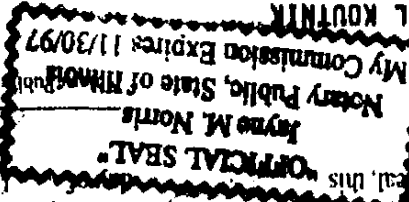 eal, this
"OFFICIAL SEAL"
Jayne M. Norris
Notary Public, State of Illinois
My Commission Expires 11/30/97
L KOUTNIK